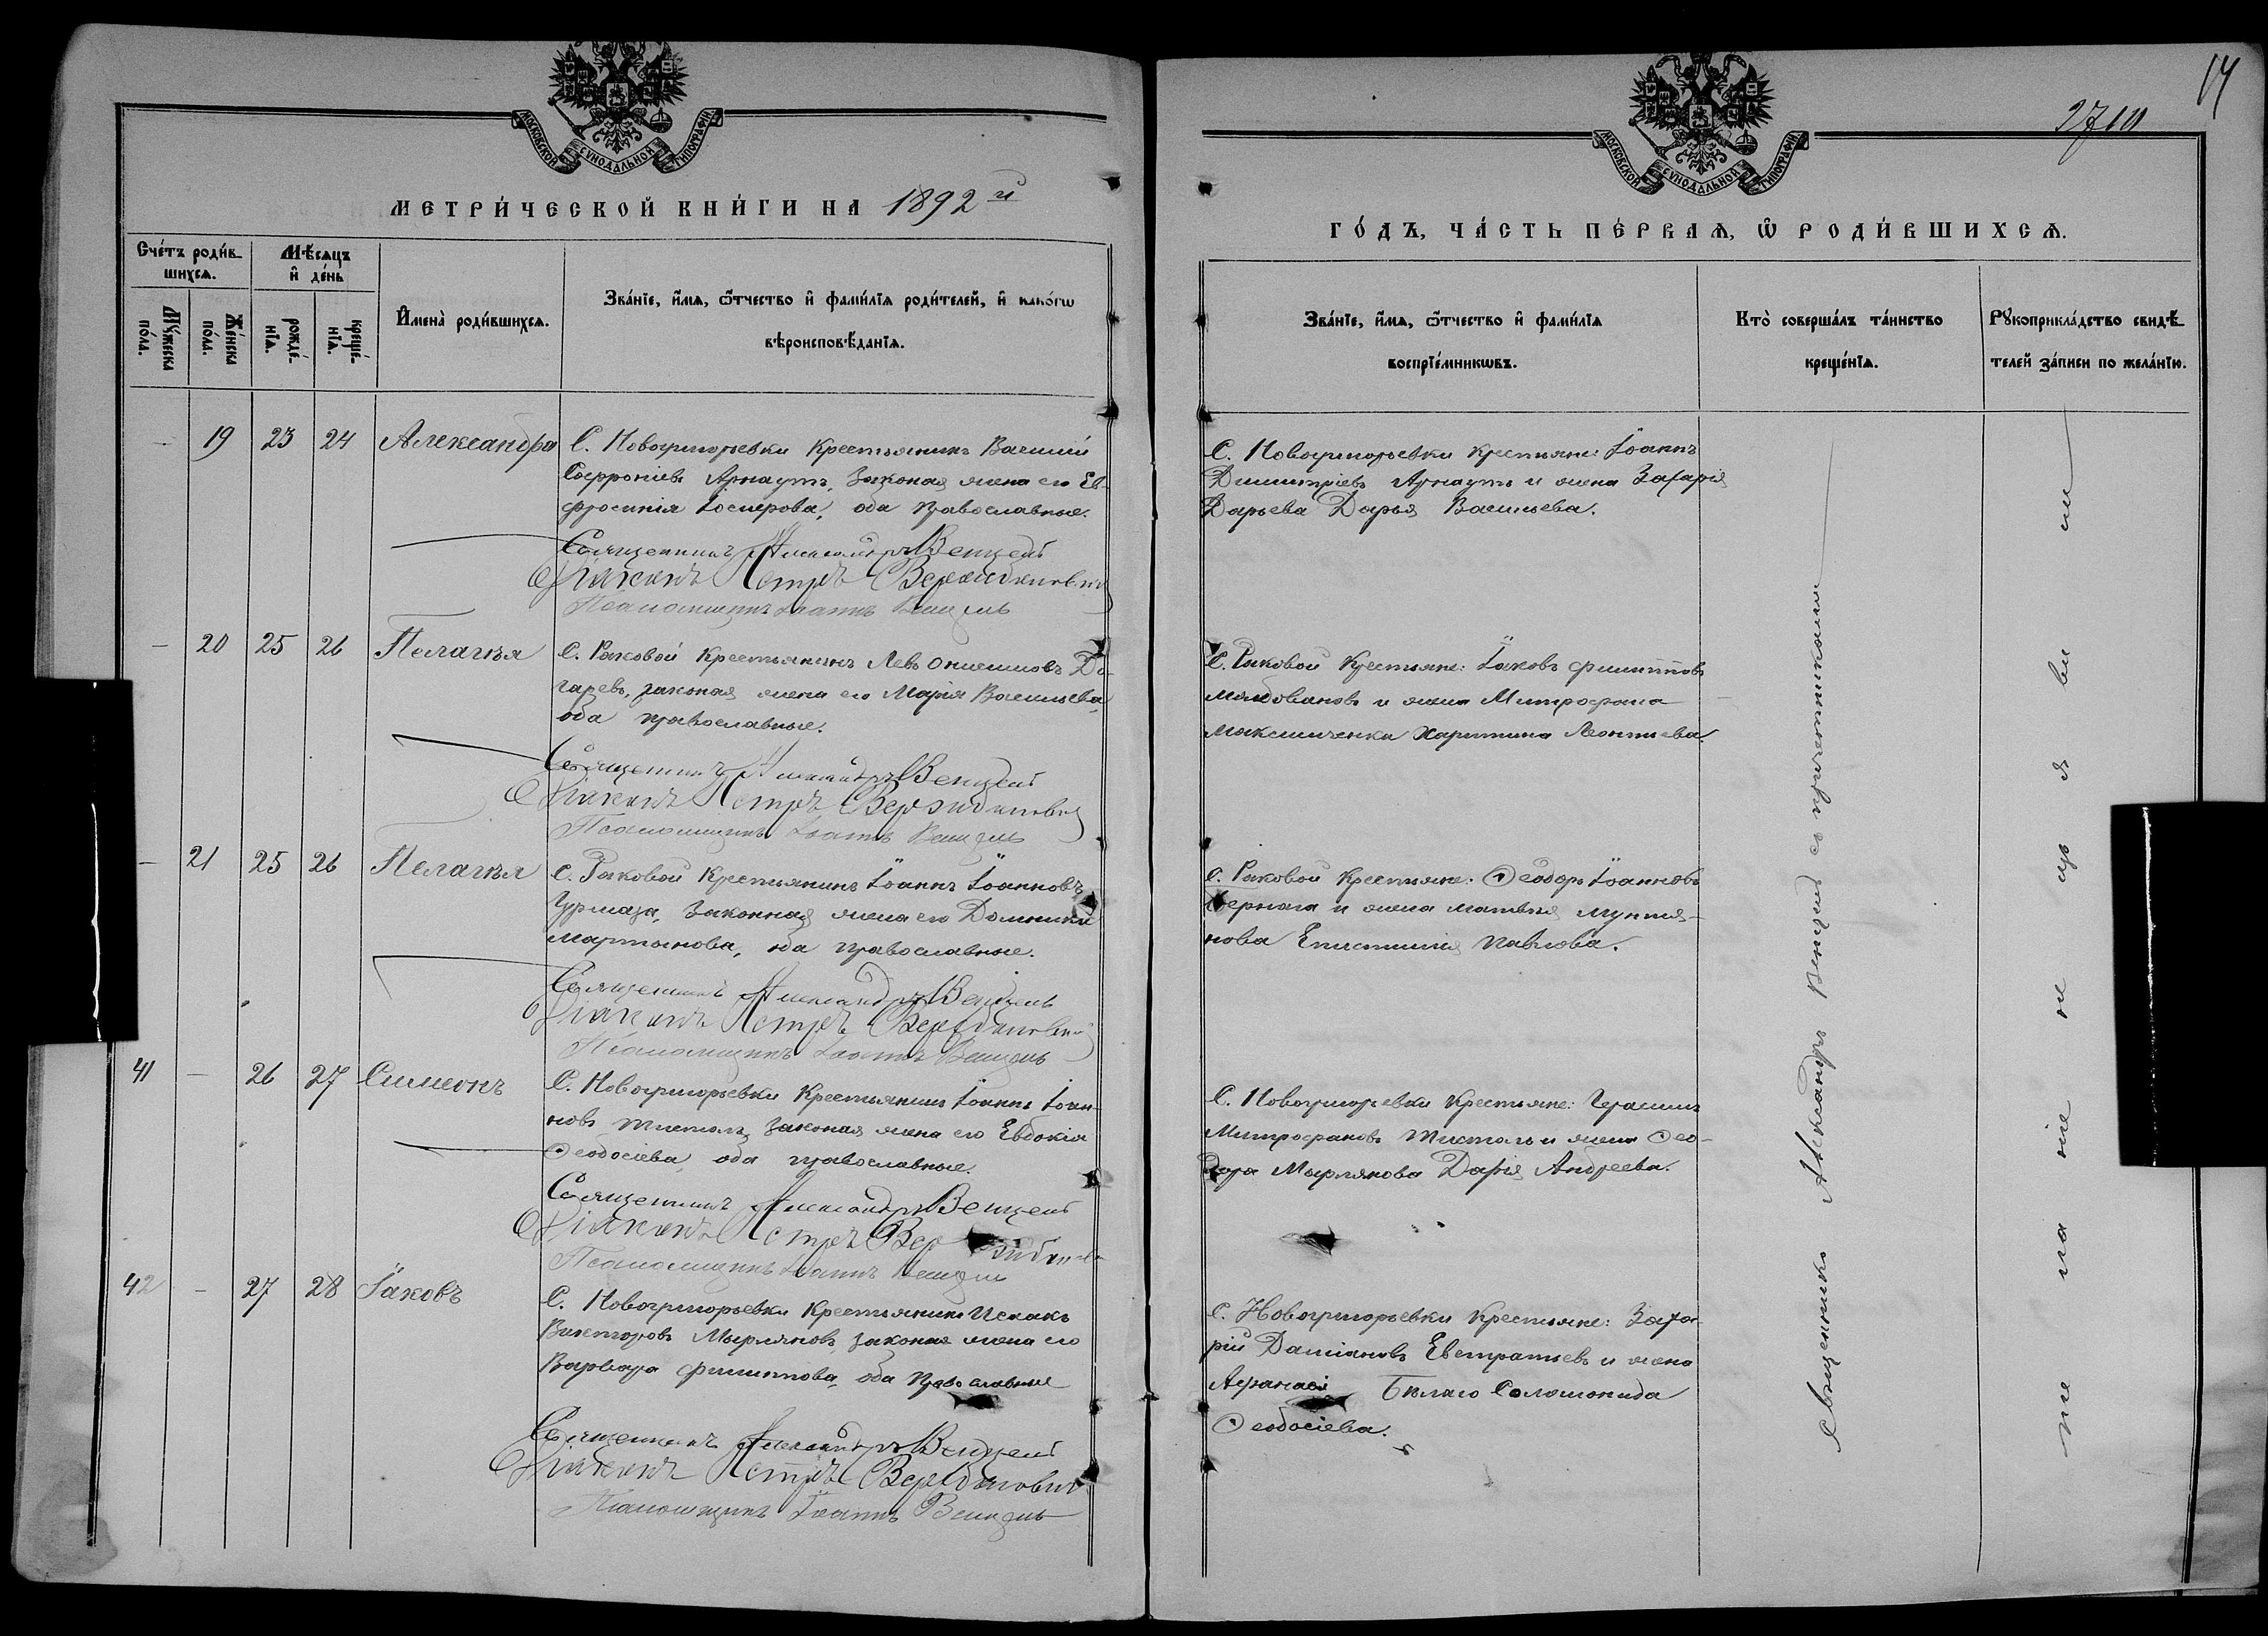 МОСКОВСКОЙ СѴНОДАЛЬНОЙ ТИПОГРАФІИ
МЕТРИ́ЧЕСКОЙ КНИ́ГИ НА 1892 й
Сче́тъ роди́в-
шихсѧ.
Мѣ́сѧцъ
и҆ де́нь
Мꙋ́жеска
по́ла.
Же́нска
по́ла.
рожде́-
нїѧ.
креще́-
нїѧ.
И҆мена̀ роди́вшихсѧ.
Зва́нїе, и҆́мѧ, ѻ҆́тчество и҆ фами́лїѧ роди́телей, и҆ како́гѡ
вѣроисповѣ́данїѧ.
— 19 23 24 Александра С. Новогригорьевки Крестьянинъ Василій
Софроніевъ Арнаутъ, Законая жена его Ев-
фросинія Іосифова, оба православные.
Священникъ Александръ Венцель
Діаконъ Петръ
Псаломщикъ Іоаннъ Венцель
— 20 25 26 Пелагія С. Раковой Крестьянинъ Левъ Онисимовъ До-
гаревъ, законая жена его Марія Васильева,
оба православные.
Священникъ Александръ Венцель
Діаконъ Петръ
Псаломщикъ Іоаннъ Венцель
— 21 25 26 Пелагія С. Раковой Крестьянинъ Іоаннъ Іоанновъ
Гурмаза, Законная жена его Домникія
Мартынова, оба православные.
Священникъ Александръ Венцель
Діаконъ Петръ
Псаломщикъ Іоаннъ Венцель
41 — 26 27 Симеонъ С. Новогригорьевки Крестьянинъ Іоаннъ Іоан-
новъ законая жена его Евдокія
Ѳеодосіева, оба православные.
Священникъ Александръ Венцель
Діаконъ Петръ
Псаломщикъ Іоаннъ Венцель
42 — 27 28 Іаковъ С. Новогригорьевки Крестьянинъ Исаакъ
Викторовъ Мырляновъ, законая жена его
Варвара Филиппова, оба православные
Священникъ Александръ Венцель
Діаконъ Петръ
Псаломщикъ Іоаннъ Венцель
14
МОСКОВСКОЙ СѴНОДАЛЬНОЙ ТИПОГРАФІИ
ГО́ДЪ, ЧА́СТЬ ПЕ́РВАѦ, Ѡ҆ РОДИ́ВШИХСѦ.
Зва́нїе, и҆́мѧ, ѻ҆́тчество и҆ фами́лїѧ
воспрїе́мникѡвъ.
Кто̀ соверша́лъ та́инство
креще́нїѧ.
Рꙋкоприкла́дство свидѣ́-
телей за́писи по жела́нїю.
С. Новогригорьевки крестьяне: Іоаннъ
Димитріевъ Арнаутъ и жена Захарія
Дарьева Дарья Васильева.
С. Раковой Крестьяне: Іаковъ Филипповъ
и жена Митрофана
Максимченка Харитина Леонтьева.
С. Раковой Крестьяне: Ѳеодоръ Іоанновъ
Чернага и жена Матвія Мунтя-
нова Епистимія Павлова.
С. Новогригорьевки Крестьяне: Герасимъ
Митрофановъ и жена Ѳео-
дора Мырлянова Дарія Андреева.
С. Новогригорьевки Крестьяне: Заха-
рій Даміановъ Евстратьевъ и жена
Афанасія Бѣлаго Соломонида
Ѳеодосіева.
Священникъ Александръ Венцель съ причетниками
не изъявили